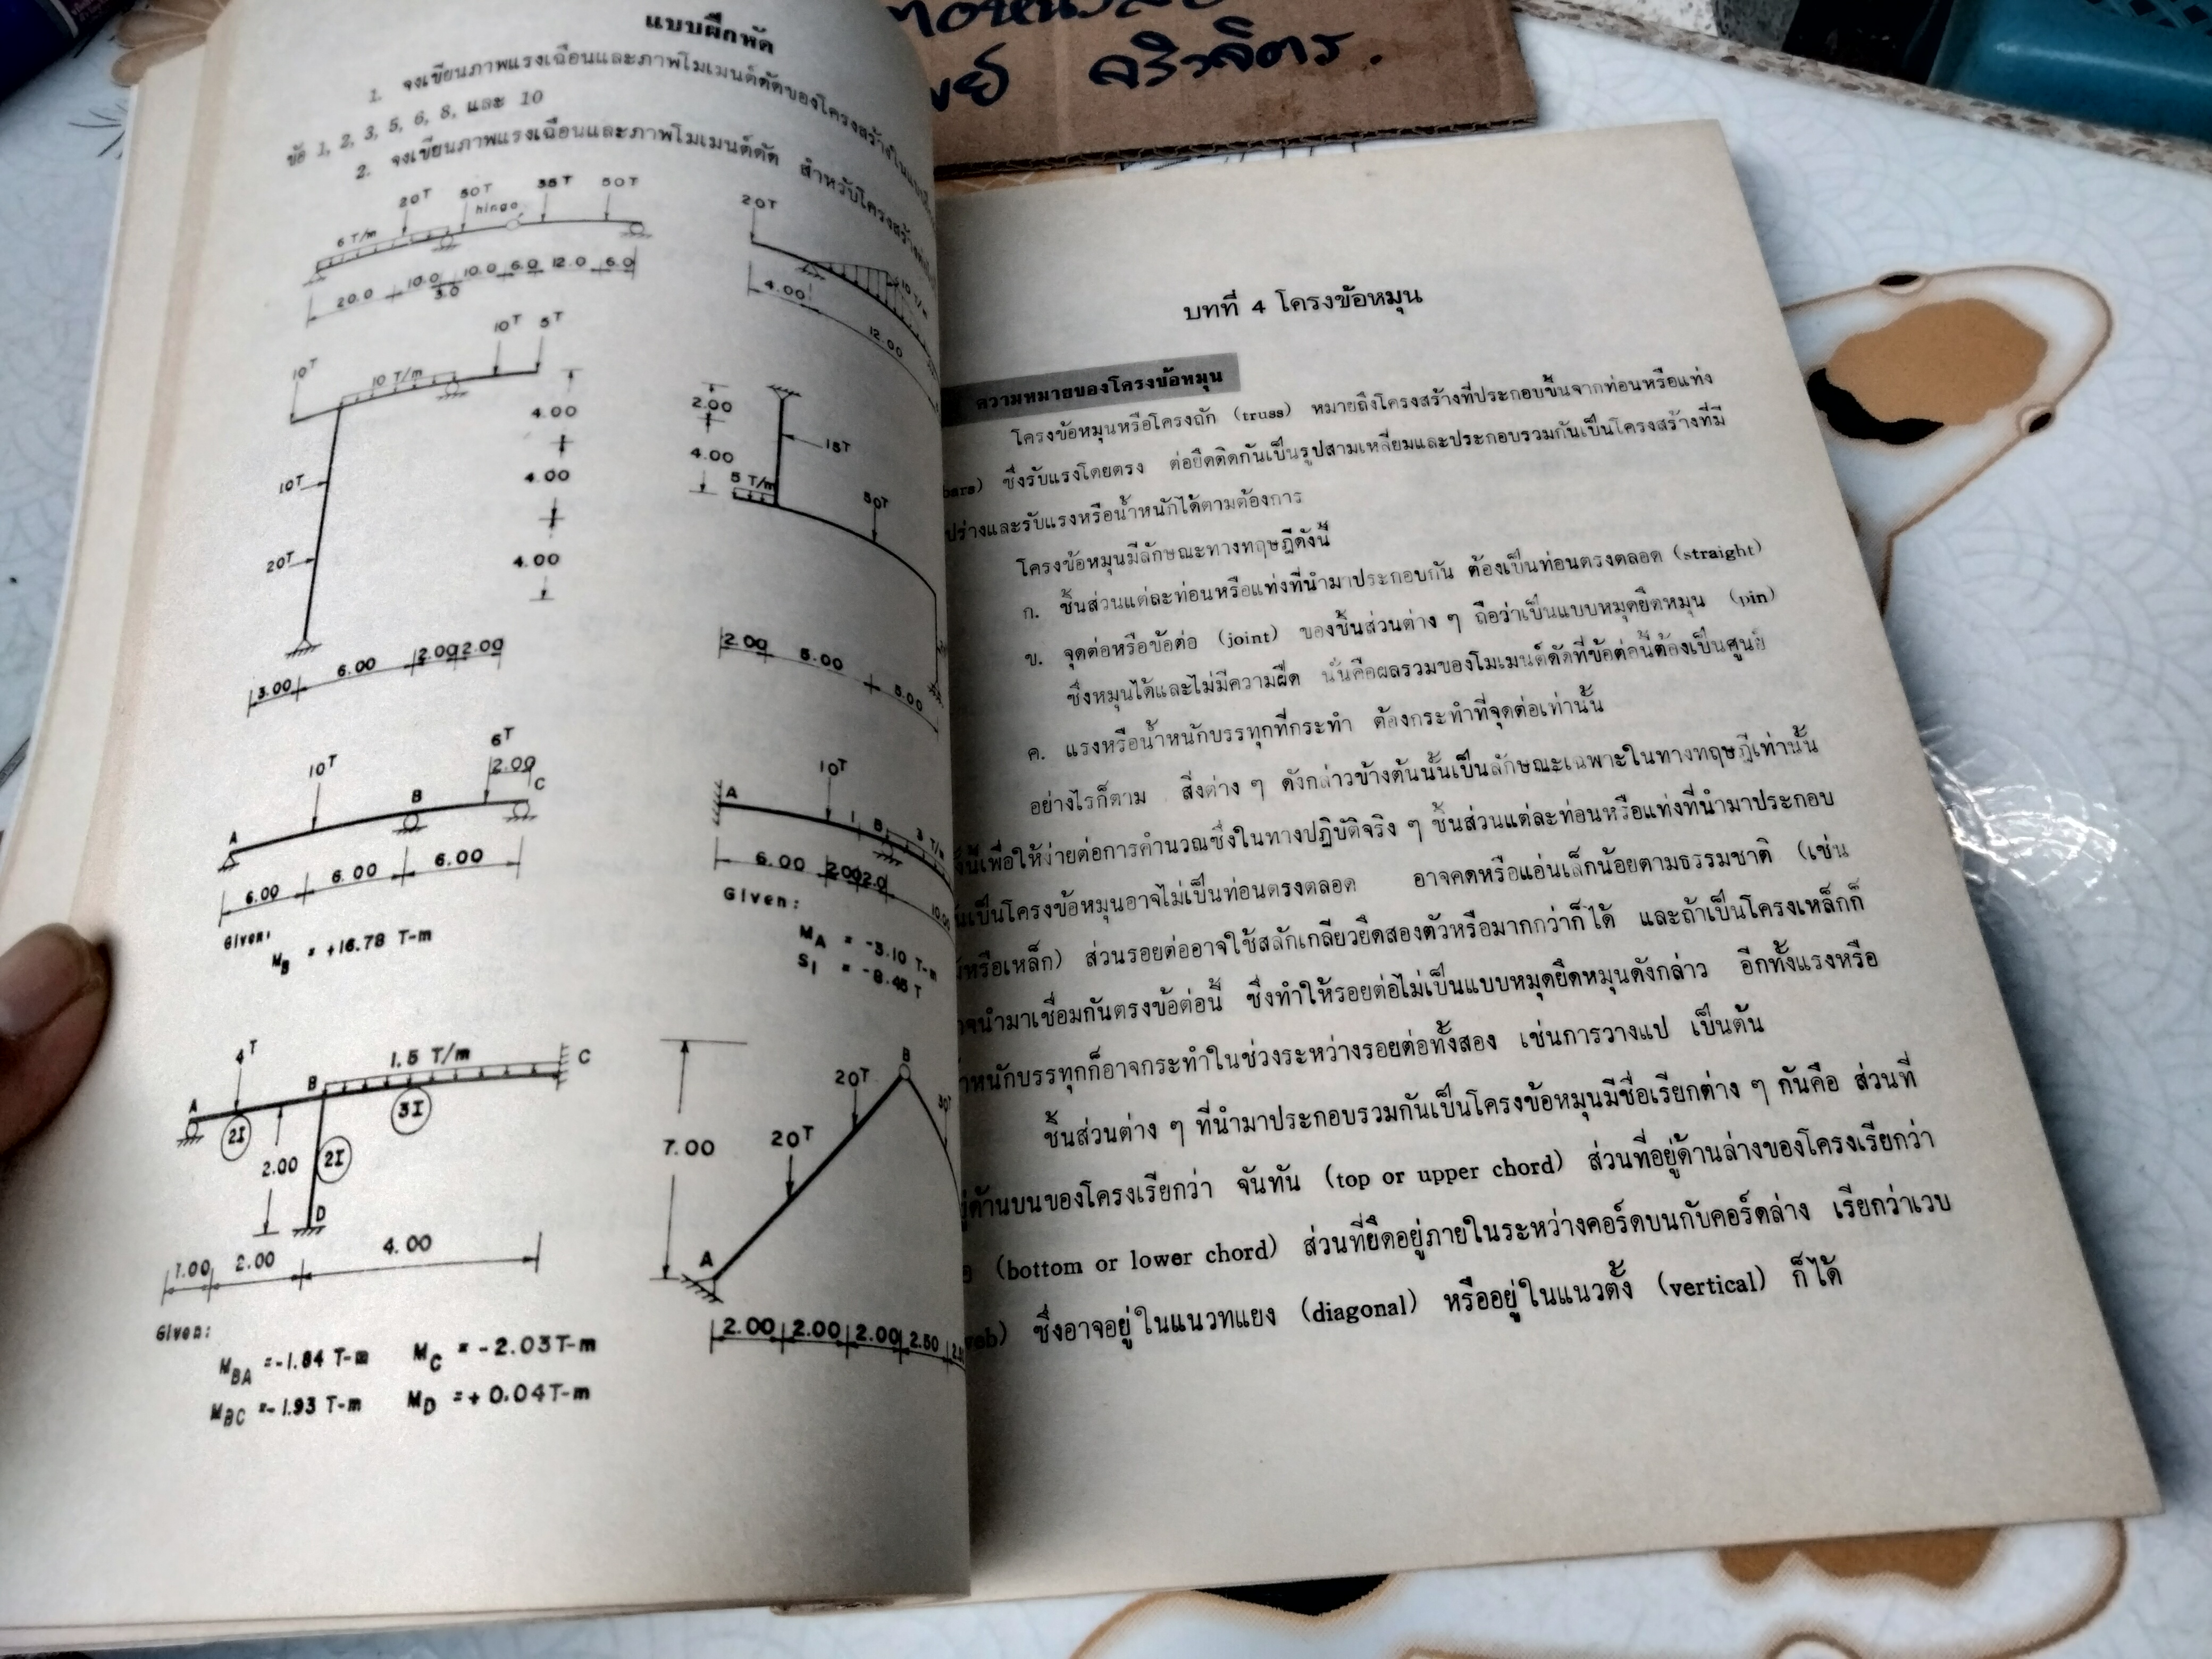 แบบฝึกหัด
1. จงเขียนภาพแรงเฉือนและภาพโมเมนต์ดัดของโครงสร้างใน
ข้อ 1, 2, 3, 5, 6, 8, และ 10
2. จงเขียนภาพแรงเฉือนและภาพโมเมนต์ดัด สำหรับโครงสร้าง
20T 50T hinge 35T 50T
6 T/m
20.0 10.0 3.0 10.0 6.0 12.0 6.0
20T
10 T/m
4.00 12.00
10T 10 T/m 10T 5T
4.00
10T
4.00
20T
4.00
3.00 6.00 2.00 2.00
2.00
15T
4.00
5 T/m
50T
2.00 5.00 5.00
10T 6T
2.00
A B C
6.00 6.00 6.00
Given:
M_B = +16.78 T-m
A 10T 1 B 3 T/m
6.00 2.00 2.0 10.00
Given:
M_A = -3.10 T-m
S_1 = -8.45 T
4T 1.5 T/m
A B C
2I 3I
2.00 2I
D
1.00 2.00 4.00
Given:
M_BA = -1.84 T-m M_C = -2.03 T-m
M_BC = -1.93 T-m M_D = + 0.04 T-m
B
20T 30T
20T
7.00
A
2.00 2.00 2.00 2.50
บทที่ 4 โครงข้อหมุน
ความหมายของโครงข้อหมุน
โครงข้อหมุนหรือโครงถัก (truss) หมายถึงโครงสร้างที่ประกอบขึ้นจากท่อนหรือแท่ง
bars) ซึ่งรับแรงโดยตรง ต่อยึดติดกันเป็นรูปสามเหลี่ยมและประกอบรวมกันเป็นโครงสร้างที่มี
ปร่างและรับแรงหรือน้ำหนักได้ตามต้องการ
โครงข้อหมุนมีลักษณะทางทฤษฎีดังนี้
ก. ชิ้นส่วนแต่ละท่อนหรือแท่งที่นำมาประกอบกัน ต้องเป็นท่อนตรงตลอด (straight)
ข. จุดต่อหรือข้อต่อ (joint) ของชิ้นส่วนต่าง ๆ ถือว่าเป็นแบบหมุดยึดหมุน (pin)
ซึ่งหมุนได้และไม่มีความฝืด นั่นคือผลรวมของโมเมนต์ดัดที่ข้อต่อนี้ต้องเป็นศูนย์
ค. แรงหรือน้ำหนักบรรทุกที่กระทำ ต้องกระทำที่จุดต่อเท่านั้น
อย่างไรก็ตาม สิ่งต่าง ๆ ดังกล่าวข้างต้นนั้นเป็นลักษณะเฉพาะในทางทฤษฎีเท่านั้น
นี้เพื่อให้ง่ายต่อการคำนวณซึ่งในทางปฏิบัติจริง ๆ ชิ้นส่วนแต่ละท่อนหรือแท่งที่นำมาประกอบ
เป็นโครงข้อหมุนอาจไม่เป็นท่อนตรงตลอด อาจคดหรือแอ่นเล็กน้อยตามธรรมชาติ (เช่น
หรือเหล็ก) ส่วนรอยต่ออาจใช้สลักเกลียวยึดสองตัวหรือมากกว่าก็ได้ และถ้าเป็นโครงเหล็กก็
นำมาเชื่อมกันตรงข้อต่อนี้ ซึ่งทำให้รอยต่อไม่เป็นแบบหมุดยึดหมุนดังกล่าว อีกทั้งแรงหรือ
หนักบรรทุกก็อาจกระทำในช่วงระหว่างรอยต่อทั้งสอง เช่นการวางแป เป็นต้น
ชิ้นส่วนต่าง ๆ ที่นำมาประกอบรวมกันเป็นโครงข้อหมุนมีชื่อเรียกต่าง ๆ กันคือ ส่วนที่
ด้านบนของโครงเรียกว่า จันทัน (top or upper chord) ส่วนที่อยู่ด้านล่างของโครงเรียกว่า
(bottom or lower chord) ส่วนที่ยึดอยู่ภายในระหว่างคอร์ดบนกับคอร์ดล่าง เรียกว่าเวบ
web) ซึ่งอาจอยู่ในแนวทแยง (diagonal) หรืออยู่ในแนวตั้ง (vertical) ก็ได้